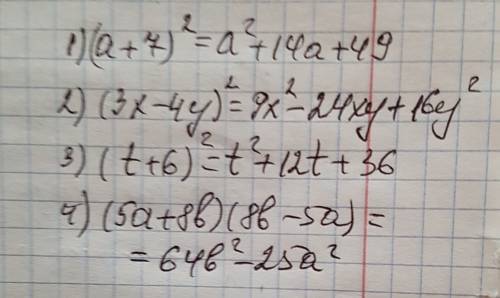 1) (a+7)² = a²+14a+49
2) (3x-4y)² = 9x²-24xy+16y²
3) (t+6)² = t²+12t+36
4) (5a+8b)(8b-5a) =
= 64b²-25a²